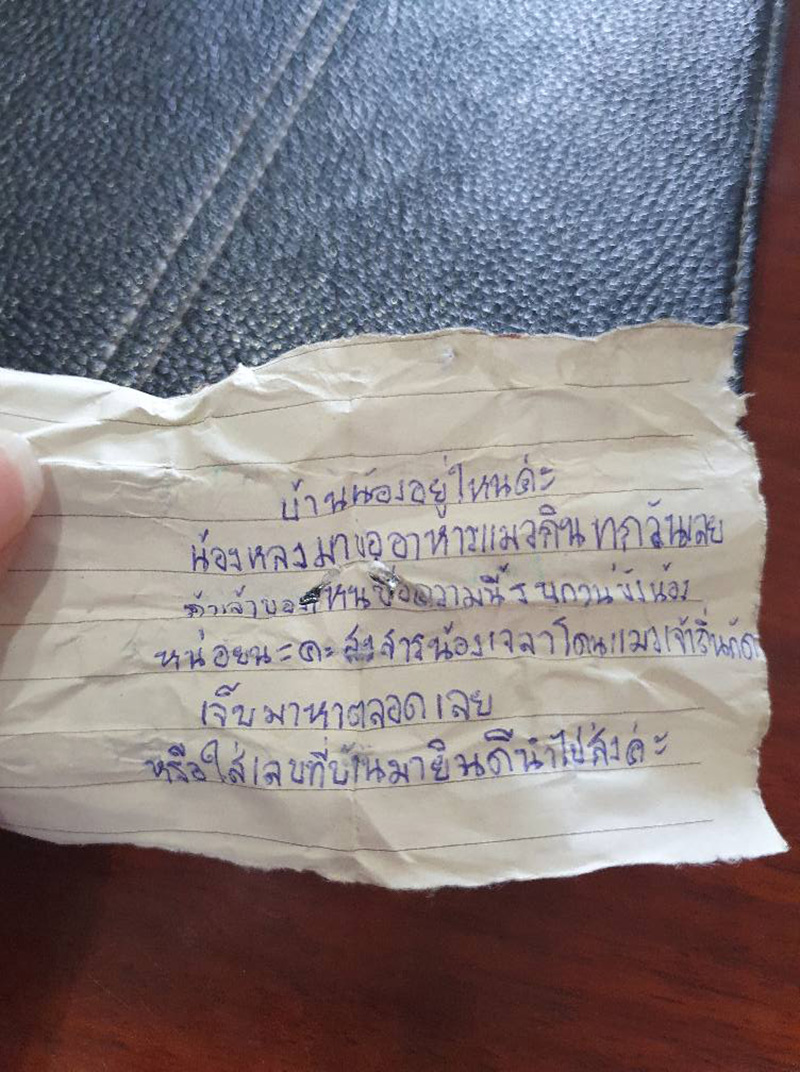 บ้านน้องอยู่ใหนค่ะ
น้องหลงมาขออาหารแมวกินทุกวันเลย
ถ้าเจ้าของเห็นข้อความนี้รบกวนขังน้อง
หน่อยนะคะ สงสารน้องเวลาโดนแมวเจ้าถิ่นกัด
เจ็บมาหาตลอดเลย
หรือใส่เลขที่บ้านมายินดีนำไปส่งค่ะ